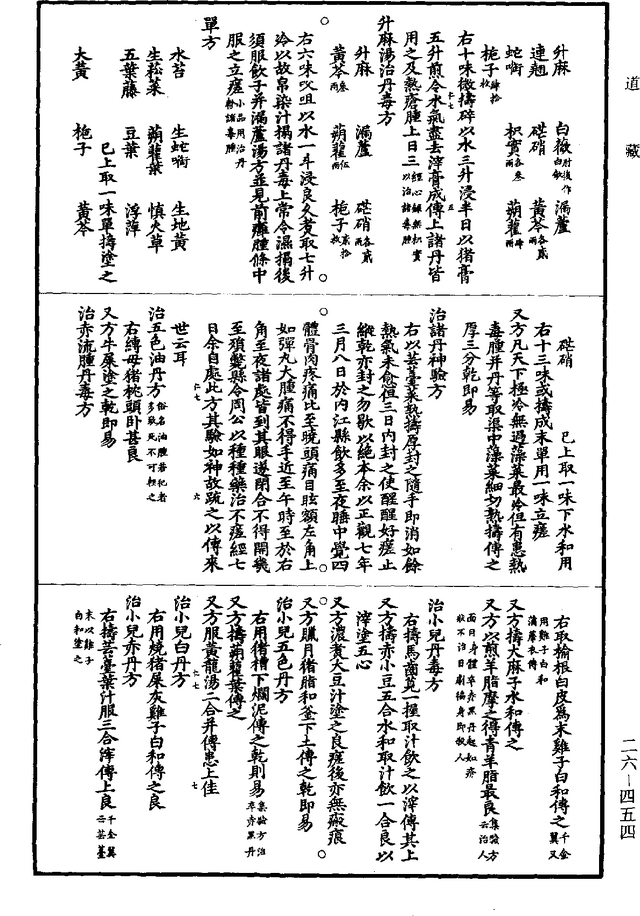 道藏
升麻　白薇肘後作白斂　漏蘆
連翹　硭硝　黃芩各貳兩
蛇銜　枳實各叁兩　蒴藋肆兩
梔子肆拾枚
右十味微擣碎以水三升浸半日以猪膏
五升煎令水氣盡去滓膏成傅上諸丹皆
用之及熱瘡腫上日三經心録無枳實以治諸毒腫
升麻湯治丹毒方
升麻　漏蘆　硭硝各貳兩
黃芩叁兩　蒴藋伍兩　梔子貳拾枚
右六味㕮咀以水一斗浸良久煮取七升
冷以故帛染汁搨諸丹毒上常令濕搨後
須服飲子并漏蘆湯方並見前癰腫條中
服之立瘥小品用治丹疹諸毒腫
單方
水苔　生蛇銜　生地黃
生菘菜　蒴藋葉　慎火草
五葉藤　豆葉　浮萍
大黃　梔子　黃芩
硭硝
已上取一味單擣塗之
已上取一味下水和用
右十三味或擣成末單用一味立瘥
又方凡天下極冷無過藻菜最冷但有患熱
毒腫并丹等取渠中藻菜細切熟擣傅之
厚三分乾即易
治諸丹神驗方
右以芸薹菜熟擣厚封之隨手即消如餘
熱氣未愈但三日內封之使醒醒好瘥止
縱乾亦封之勿歇以絕本余以正觀七年
三月八日於內江縣飲多至夜睡中覺四
體骨肉疼痛比至曉頭痛目眩額左角上
如彈丸大腫痛不得手近至午時至於右
角至夜諸處皆到其眼遂閉合不得開幾
至殞斃縣令周公以種種藥治不瘥經七
日余自處此方其驗如神故疏之以傳來
世云耳
治五色油丹方俗名油腫若犯者多致死不可輕之
右縛母猪枕頭卧甚良
又方牛屎塗之乾即易
治赤流腫丹毒方
右取榆根白皮爲末雞子白和傅之千金翼又用雞子白和蒲席灰傅
又方擣大麻子水和傅之
又方以煎羊脂摩之得青羊脂最良集驗方云治人面目身體卒赤黑丹起如疥狀不治日劇徧身即殺人
治小兒丹毒方
右擣馬齒莧一握取汁飲之以滓傅其上
又方擣赤小豆五合水和取汁飲一合良以
滓塗五心
又方濃煮大豆汁塗之良瘥後亦無瘢痕
又方臘月猪脂和釜下土傅之乾即易
治小兒五色丹方
右用猪槽下爛泥傅之乾則易集驗方治卒赤黑丹
又方擣蒴藋葉傅之
又方服黃龍湯二合并傅患上佳
治小兒白丹方
右用燒猪屎灰雞子白和傅之良
治小兒赤丹方
右擣芸薹葉汁服三合滓傅上良千金翼云芸薹末以雞子白和塗之
二六—四五四